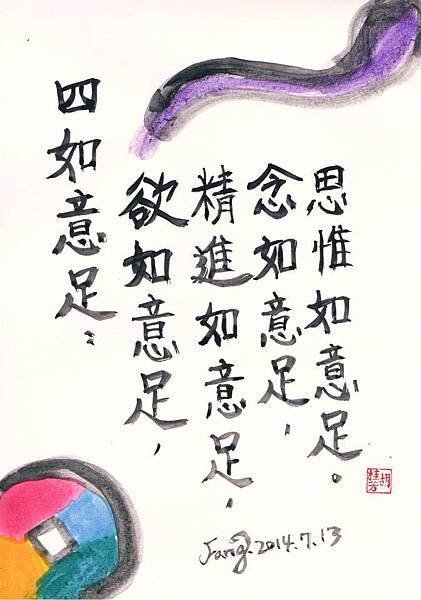 四如意足：
欲如意足，
精進如意足，
念如意足，
思惟如意足。
2014.7.13